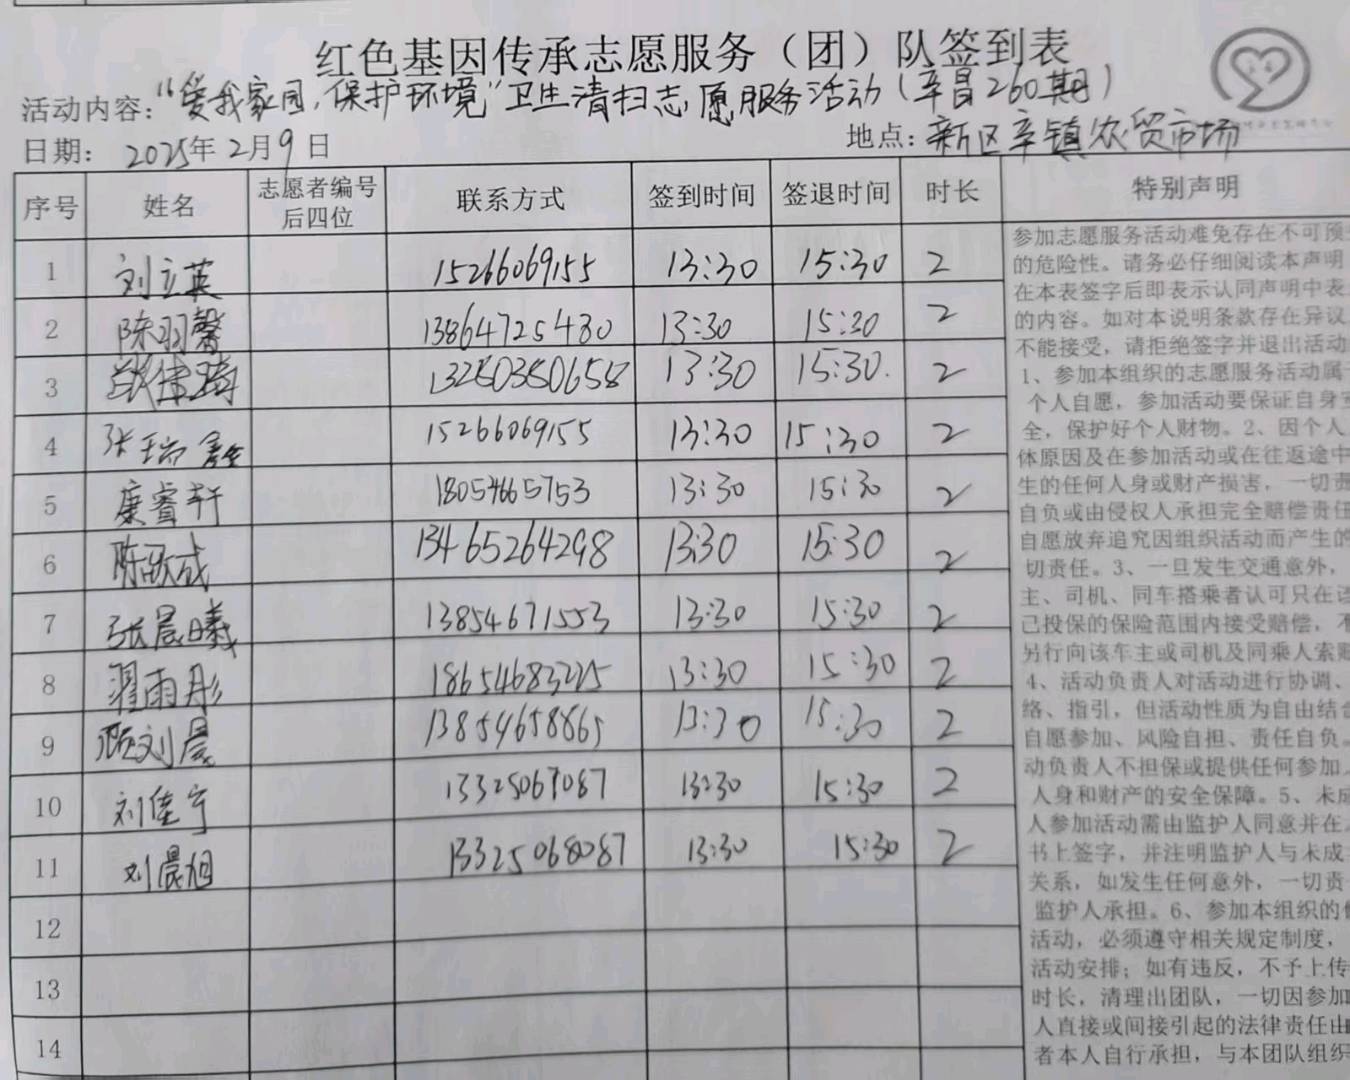 红色基因传承志愿服务（团）队签到表
活动内容：“爱我家园，保护环境”卫生清扫志愿服务活动（辛昌260期）
日期：2025年2月9日 地点：新区辛镇农贸市场
序号 姓名 志愿者编号后四位 联系方式 签到时间 签退时间 时长 特别声明
1 刘立英 15266069155 13:30 15:30 2
2 陈羽馨 13864725480 13:30 15:30 2
3 13:30 15:30. 2
4 张瑞鑫 15266069155 13:30 15:30 2
5 康睿轩 18054665753 13:30 15:30 2
6 13465264298 13:30 15:30 2
7 张晨曦 13854671553 13:30 15:30 2
8 翟雨彤 18654683225 13:30 15:30 2
9 顾刘晨 13854658865 13:30 15:30 2
10 刘佳宁 13:30 15:30 2
11 刘晨旭 13325068087 13:30 15:30 2
12
13
14
参加志愿服务活动难免存在不可预
的危险性。请务必仔细阅读本声明
在本表签字后即表示认同声明中表
的内容。如对本说明条款存在异议
不能接受，请拒绝签字并退出活动
1、参加本组织的志愿服务活动属
个人自愿，参加活动要保证自身
全，保护好个人财物。2、因个人
体原因及在参加活动或在往返途中
生的任何人身或财产损害，一切责
自负或由侵权人承担完全赔偿责任
自愿放弃追究因组织活动而产生的
切责任。3、一旦发生交通意外，
主、司机、同车搭乘者认可只在该
己投保的保险范围内接受赔偿，不
另行向该车主或司机及同乘人索赔
4、活动负责人对活动进行协调、
络、指引，但活动性质为自由结合
自愿参加、风险自担、责任自负。
动负责人不担保或提供任何参加
人身和财产的安全保障。5、未成
人参加活动需由监护人同意并在
书上签字，并注明监护人与未成
关系，如发生任何意外，一切责
监护人承担。6、参加本组织的
活动，必须遵守相关规定制度，
活动安排；如有违反，不予上传
时长，清理出团队，一切因参加
人直接或间接引起的法律责任由
者本人自行承担，与本团队组织